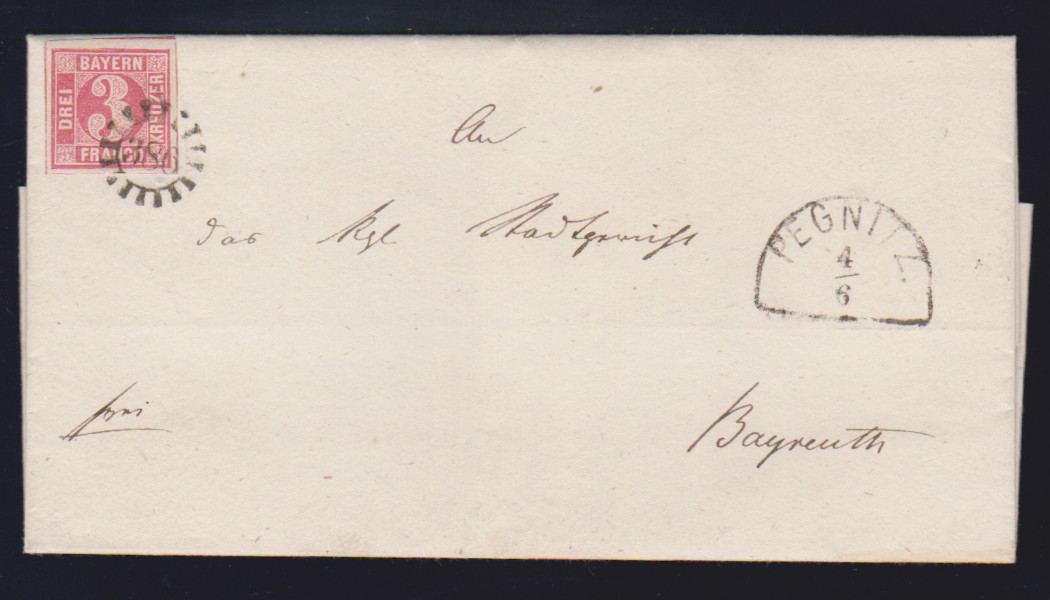 BAYERN
DREI
3
KREUZER
FRANCO
386
An
das Kgl Stadtgericht
PEGNITZ.
4
6
frei
Bayreuth